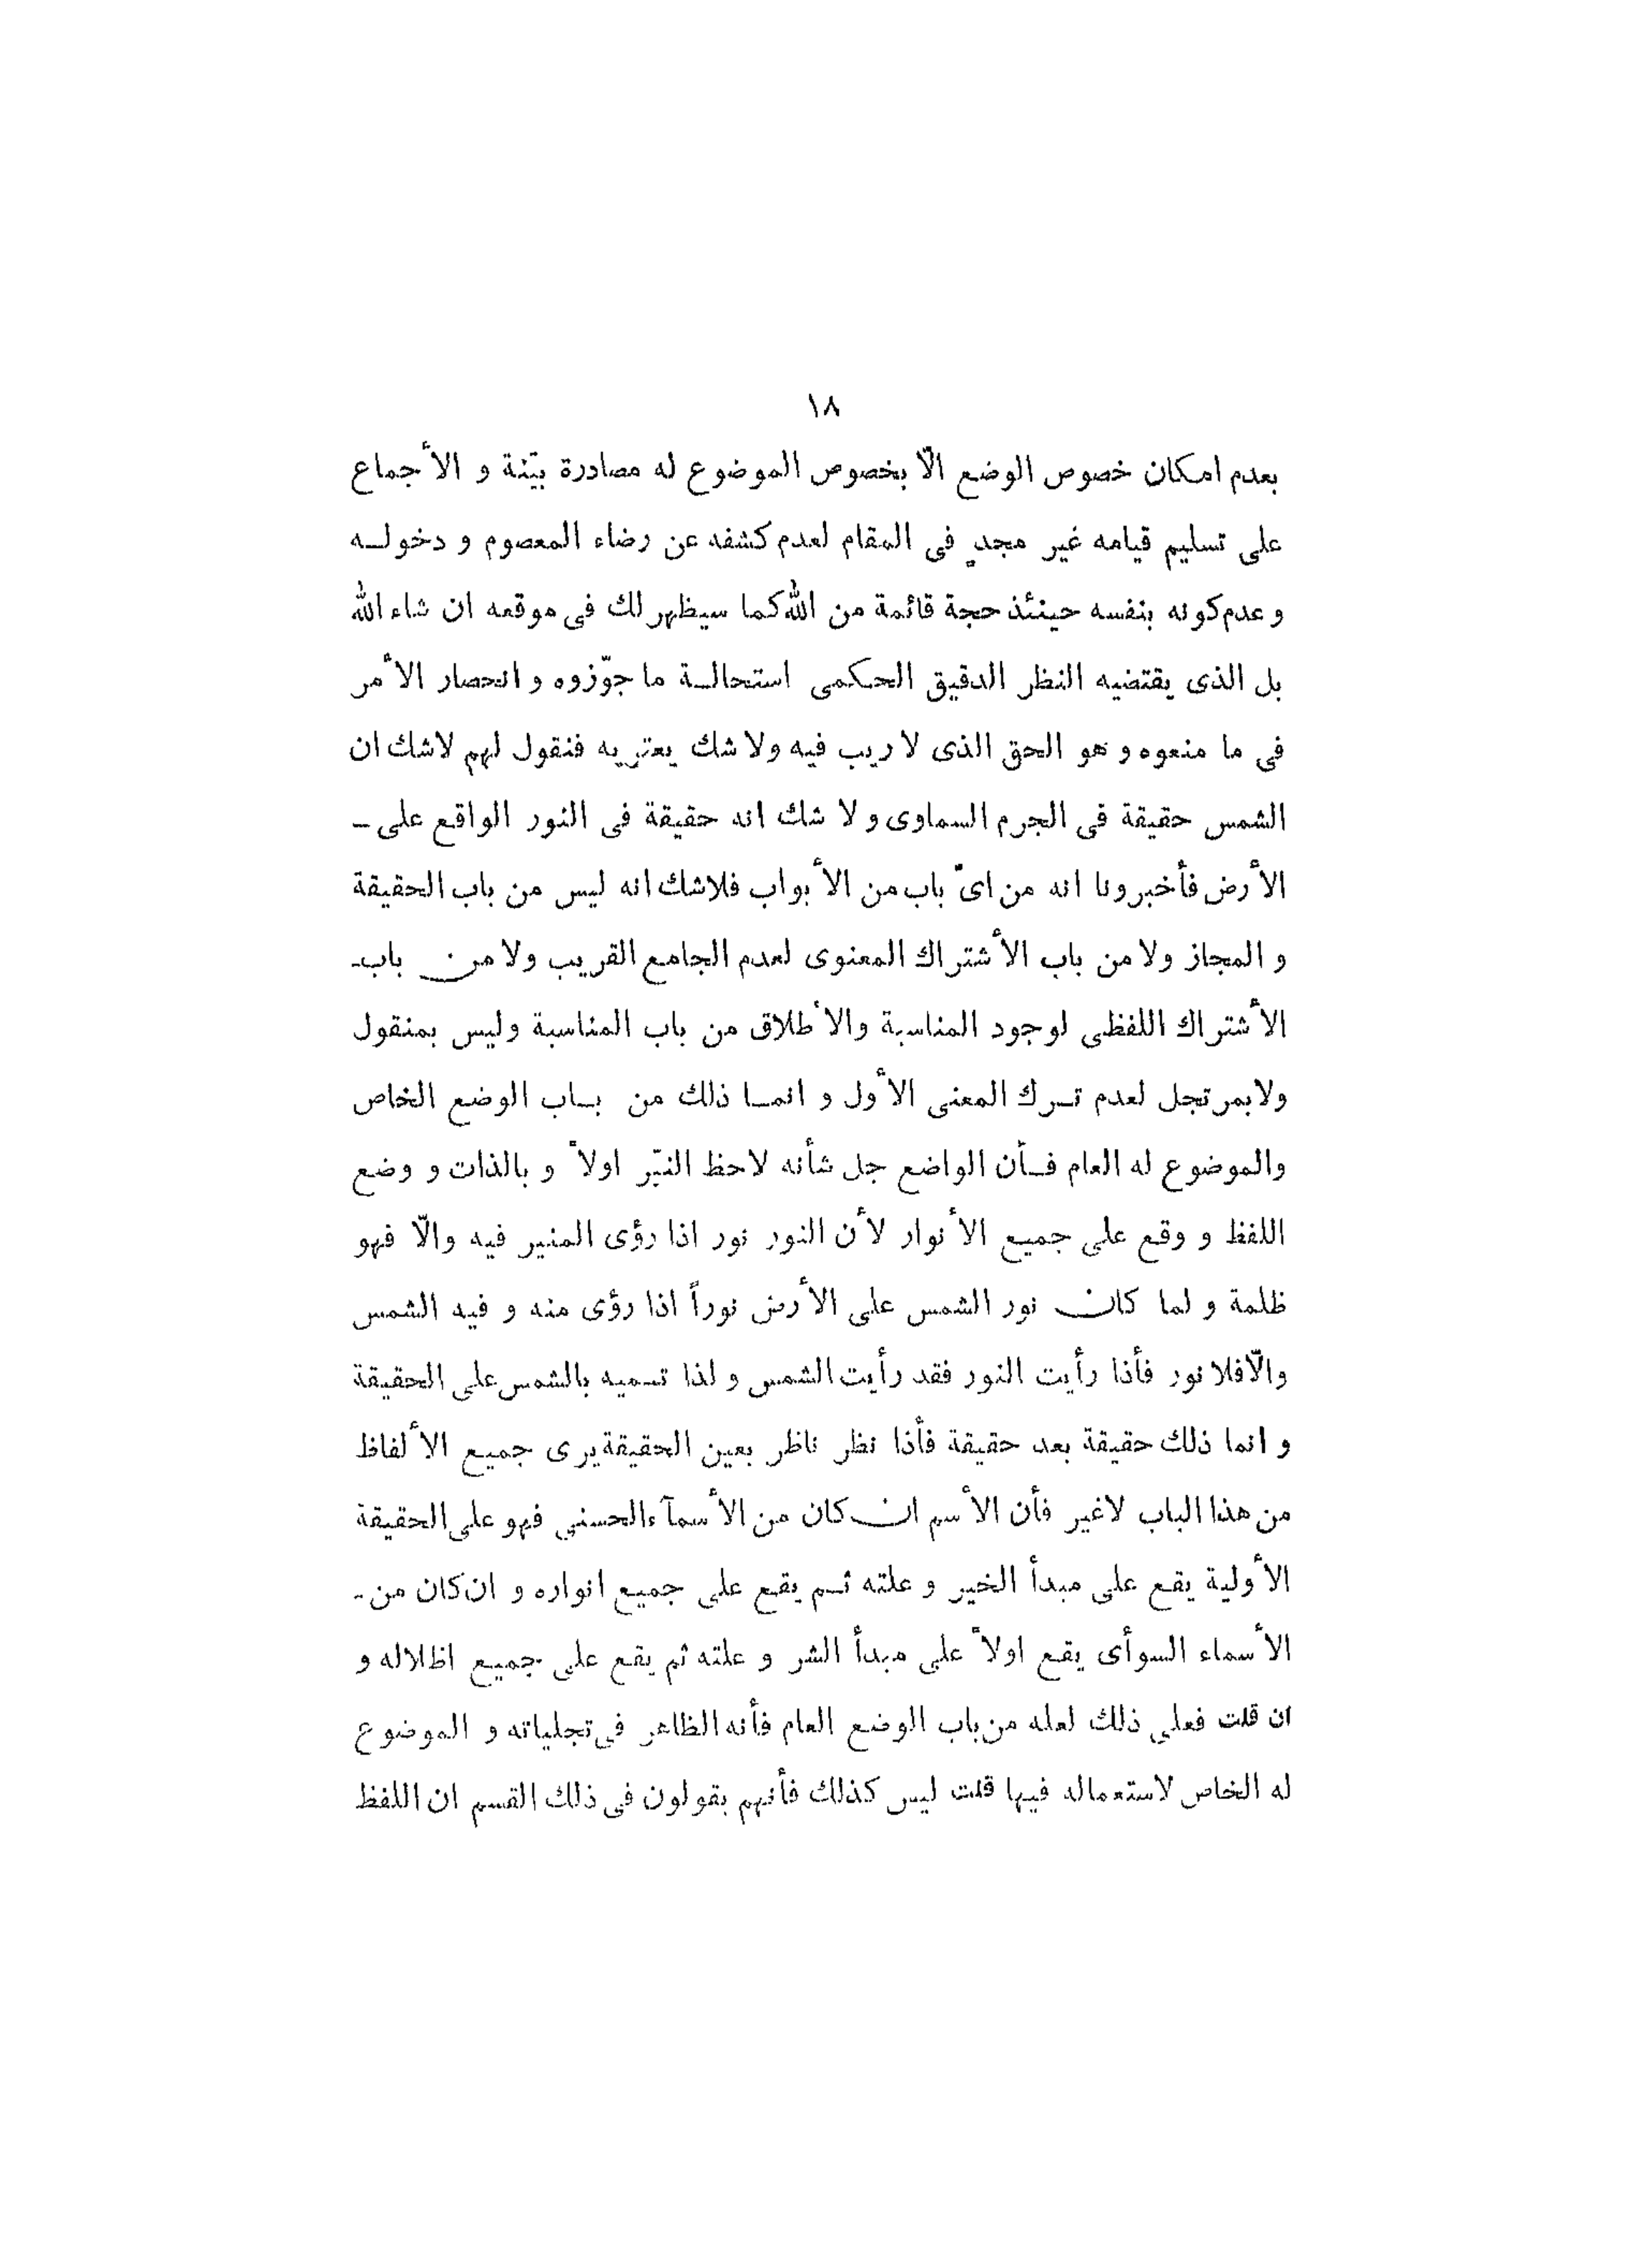 ١٨
بعدم امكان خصوص الوضع الّا بخصوص الموضوع له مصادرة بيّنة و الأجماع
على تسليم قيامه غير مجدٍ فى المقام لعدم كشفه عن رضاء المعصوم و دخولـه
و عدم كونه بنفسه حينئذ حجة قائمة من الله كما سيظهر لك فى موقعه ان شاء الله
بل الذى يقتضيه النظر الدقيق الحكمى استحالـة ما جوّزوه و انحصار الأمر
فى ما منعوه و هو الحق الذى لا ريب فيه ولا شك يعتريه فنقول لهم لاشك ان
الشمس حقيقة فى الجرم السماوى و لا شك انه حقيقة فى النور الواقع على ـ
الأرض فأخبرونا انه من اىّ باب من الأبواب فلاشك انه ليس من باب الحقيقة
و المجاز ولا من باب الأشتراك المعنوى لعدم الجامع القريب ولا من باب ـ
الأشتراك اللفظى لوجود المناسبة والأطلاق من باب المناسبة وليس بمنقول
ولابمرتجل لعدم تـرك المعنى الأول و انمـا ذلك من بـاب الوضع الخاص
والموضوع له العام فـأن الواضع جل شأنه لاحظ النيّر اولاً و بالذات و وضع
اللفظ و وقع على جميع الأنوار لأن النور نور اذا رؤى المنير فيه والّا فهو
ظلمة و لما كان نور الشمس على الأرض نوراً اذا رؤى منه و فيه الشمس
والّا فلا نور فأذا رأيت النور فقد رأيت الشمس و لذا تسميه بالشمس على الحقيقة
و انما ذلك حقيقة بعد حقيقة فأذا نظر ناظر بعين الحقيقة يرى جميع الألفاظ
من هذا الباب لاغير فأن الأسم ان كان من الأسمآء الحسنى فهو على الحقيقة
الأولية يقع على مبدأ الخير و علته ثـم يقع على جميع انواره و ان كان من ـ
الأسماء السوأى يقع اولاً على مبدأ الشر و علته ثم يقع على جميع اظلاله و
ان قلت فعلى ذلك لعله من باب الوضع العام فأنه الظاهر فى تجلياته و الموضوع
له الخاص لاستعماله فيها قلت ليس كذلك فأنهم يقولون فى ذلك القسم ان اللفظ